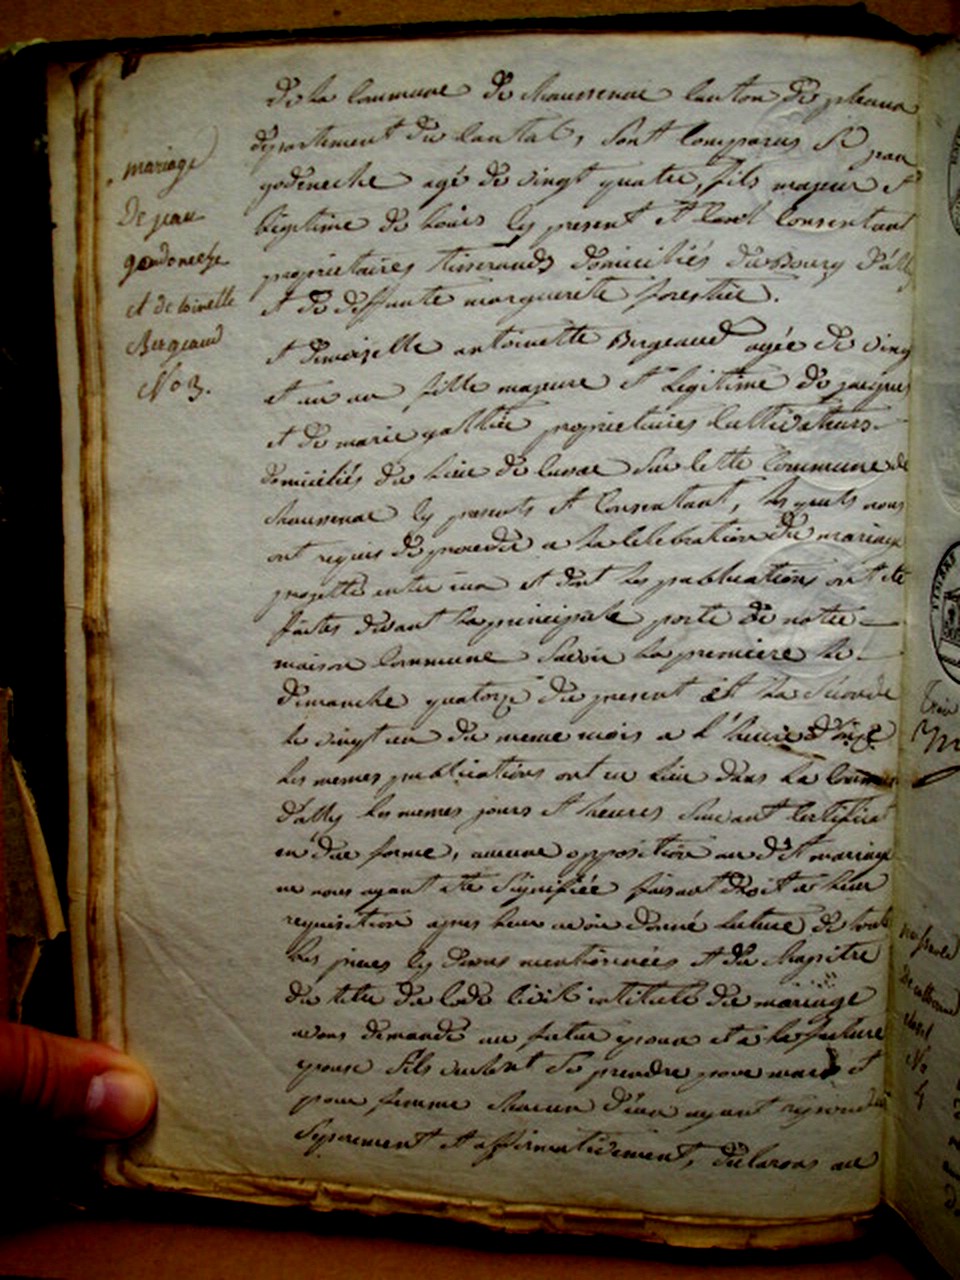 mariage
De jean
gaudoneche
et de toinette
Bergeaud
No 3.
de la Commune de Chaussenac Canton de pleaux
département du Cantal, sont Comparus Sr jean
godeneche agé de vingt quatre, fils majeur et
légitime de Louis cy present et Consentant
propriétaires tisserands domiciliés du Bourg d'ally
et de deffunte marguerite forestier.
et demoiselle antoinette Bergeaud agée de vingt
et un an fille majeure et légitime de jacques
et de marie galtier propriétaires Cultivateurs
domiciliés du lieu de sur Cette Commune de
chaussenac cy presents et Consentant, les quels nous
ont requis de proceder a la Celebration du mariage
projetté entre eux et dont les publications ont été
faites devant la principale porte de notre
maison Commune savoir la premiere le
dimanche quatorze du present et la seconde
le vingt un du meme mois a l'heure d'onze
les memes publications ont eu lieu dans la Commune
d'ally les memes jours et heures suivant Certificat
en due forme, aucune opposition au dit mariage
ne nous ayant eté signifiée faisant droit a leur
requisition apres leur avoir donné lecture de toutes
les pieces cy devant mentionnées et du Chapitre
du titre du Code Civil intitulé du mariage
avons demandé au futur epoux et a la future
epouse s'ils veulent se prendre pour mari et
pour femme chacun d'eux ayant repondu
séparement et affirmativement, declarons au